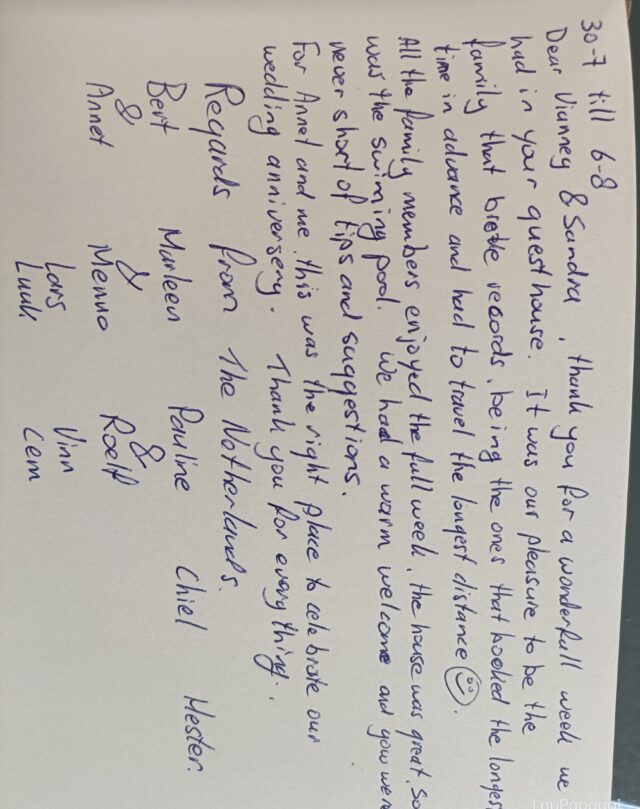 30-7 till 6-8
Dear Vianney & Sandra, thank you for a wonderfull week we
had in your guesthouse. It was our pleasure to be the
family that broke records, being the ones that booked the longest
time in advance and had to travel the longest distance
All the family members enjoyed the full week, the house was great. So
was the swiming pool. We had a warm welcome and you were
never short of tips and suggestions.
For Annet and me this was the right place to celebrate our
wedding anniversery. Thank you for everything.
Regards from The Netherlands.
Bert Marleen Pauline Chiel Hester.
& & &
Annet Menno Roelf
Lars Vinn
Luuk Cem
LouPapagai